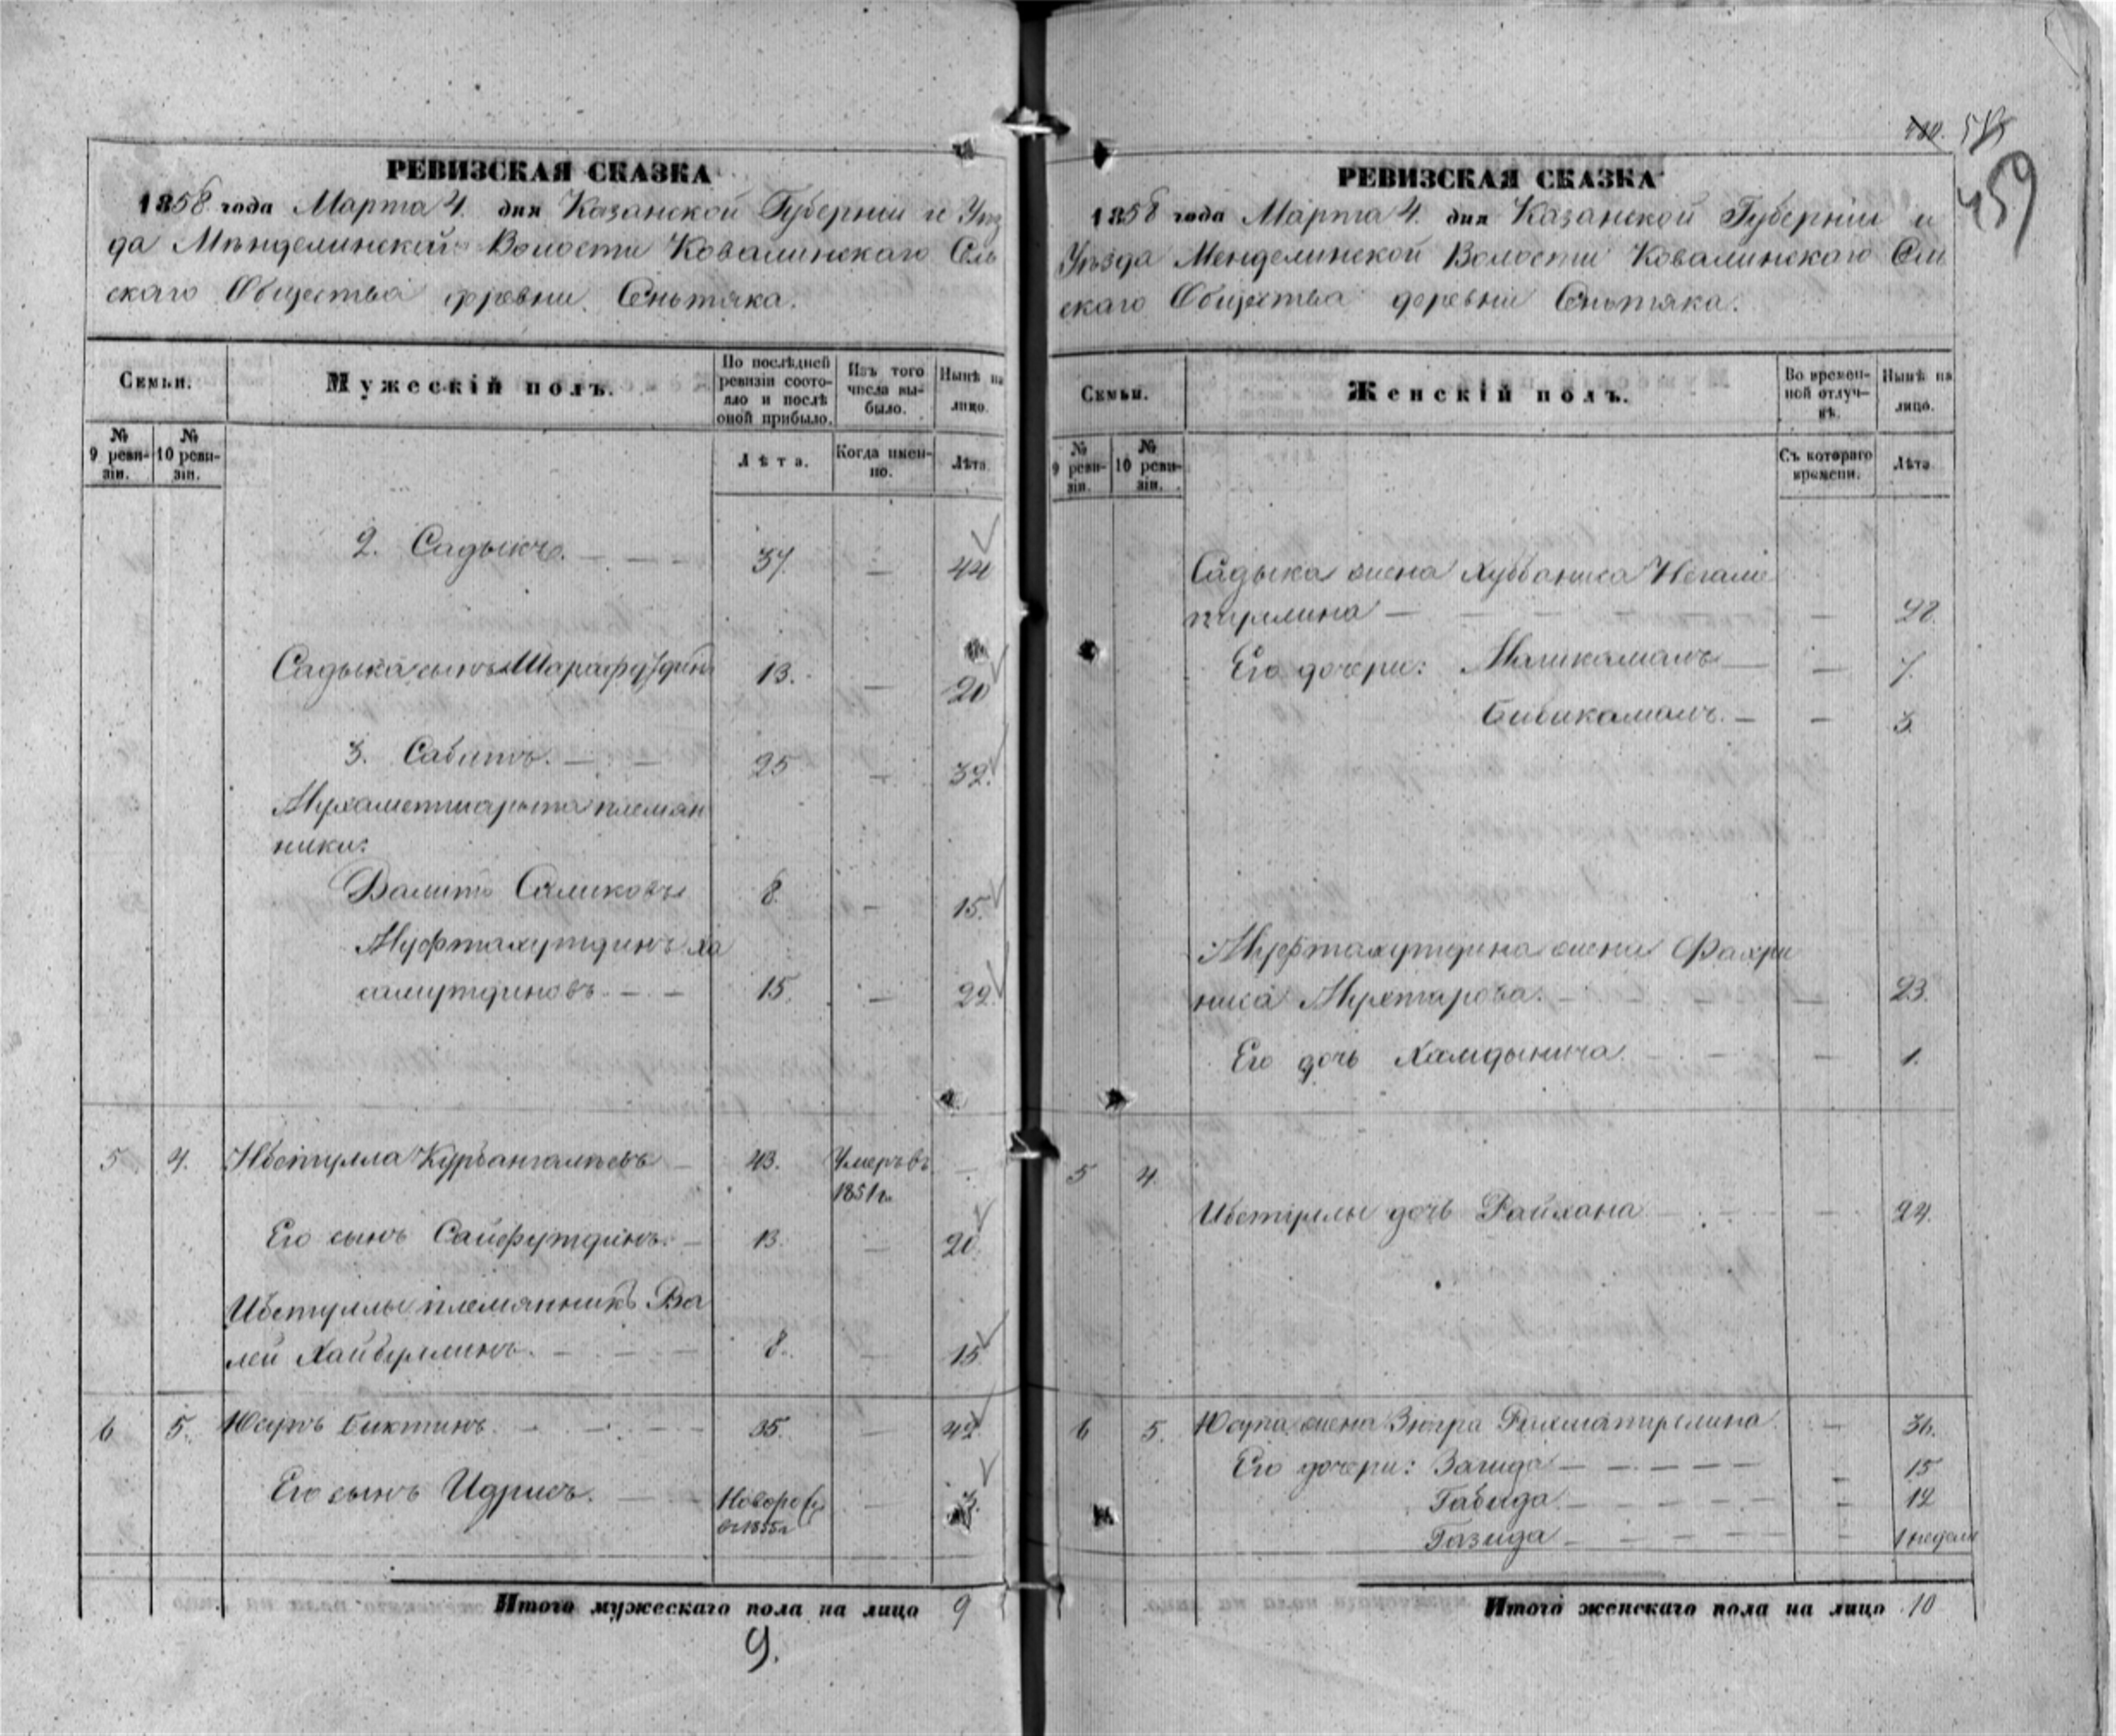 РЕВИЗСКАЯ СКАЗКА
1858 года Марта 4. дня Казанской Губернiи и Уѣз
да Мѣнделинской Волости Ковалинскаго Сель
скаго Общества деревни Сеньтяка.
Семьи.
Мужескiй полъ.
По послѣдней ревизiи состо-
яло и послѣ
оной прибыло.
Изъ того
числа вы-
было.
Нынѣ на
лицо.
№ 9 реви-
зiи.
№ 10 реви-
зiи.
Лѣта.
Когда имен-
но.
Лѣта.
2. Садыкъ. — 37. — 44
Садыка сынъ Шарафутдинъ 13. — 20
3. Сабитъ. — 25 — 32.
Мухаметшарыпа племян
ники:
Валитъ Саликовъ 8. — 15.
Муфтахутдинъ Ха
самутдиновъ — 15. — 22.
5 4. Ибетулла Курбангалѣевъ 43. Умеръ въ —
1851 г.
Его сынъ Сайфутдинъ. — 13. — 20.
Ибетуллы племянникъ Ва
лей Хайбуллинъ. — 8. — 15.
6 5. Юсупъ Биктинъ. — 35. — 42.
Его сынъ Идрисъ. — Новорож
въ 1855 г. — 3.
Итого мужескаго пола на лицо 9
9.
459
РЕВИЗСКАЯ СКАЗКА
1858 года Марта 4. дня Казанской Губернiи и
Уѣзда Менделинской Волости Ковалинскаго Сель
скаго Общества деревни Сеньтяка.
Семьи.
Женскiй полъ.
Во времен-
ной отлуч-
кѣ.
Нынѣ на
лицо.
№ 9 реви-
зiи.
№ 10 реви-
зiи.
Съ котораго
времени.
Лѣта
Садыка жена Хуббаниса
— 28.
Его дочери: Маликамалъ — 7.
Бибикамалъ. — 3.
Муфтахутдина жена Фахри
ниса Мухтарова. — 23.
Его дочь — 1.
5 4
Ибетуллы дочь Райхана — 24.
6 5. Юсупа жена Зюгра Рахматуллина — 36.
Его дочери: Загида — 15
Габида — 12
Газида — 1 недели
Итого женскаго пола на лицо 10